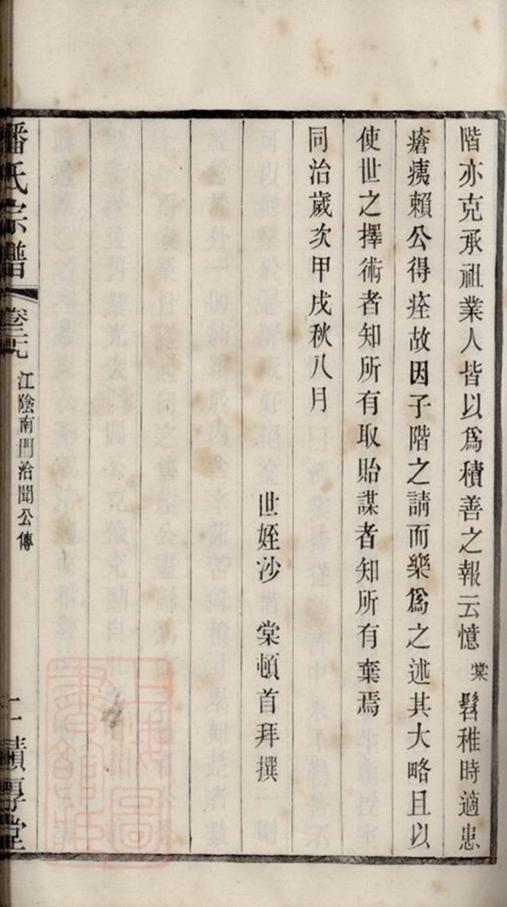 階亦克承祖業人皆以為積善之報云憶棠髫稚時適患
瘡痍賴公得痊故因子階之請而樂為之述其大略且以
使世之擇術者知所有取貽謀者知所有棄焉
同治歲次甲戌秋八月
世姪沙棠頓首拜撰
潘氏宗譜
江陰南門治聞公傳